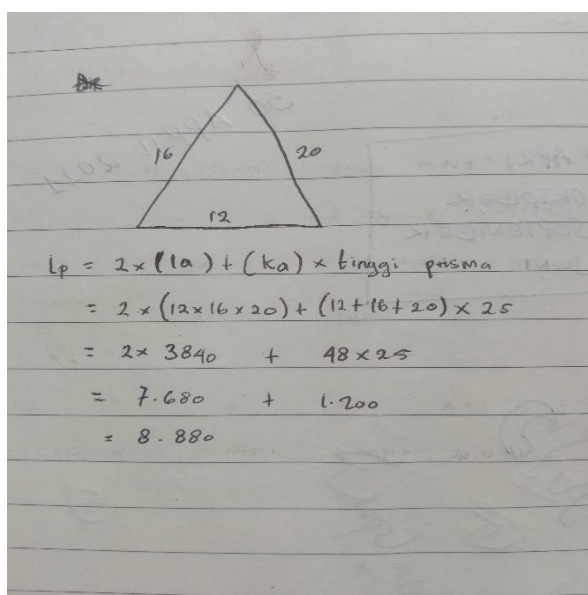 16
20
12
Lp = 2 × (la) + (ka) × tinggi prisma
= 2 × (12 × 16 × 20) + (12 + 16 + 20) × 25
= 2 × 3840 + 48 × 25
= 7.680 + 1.200
= 8.880